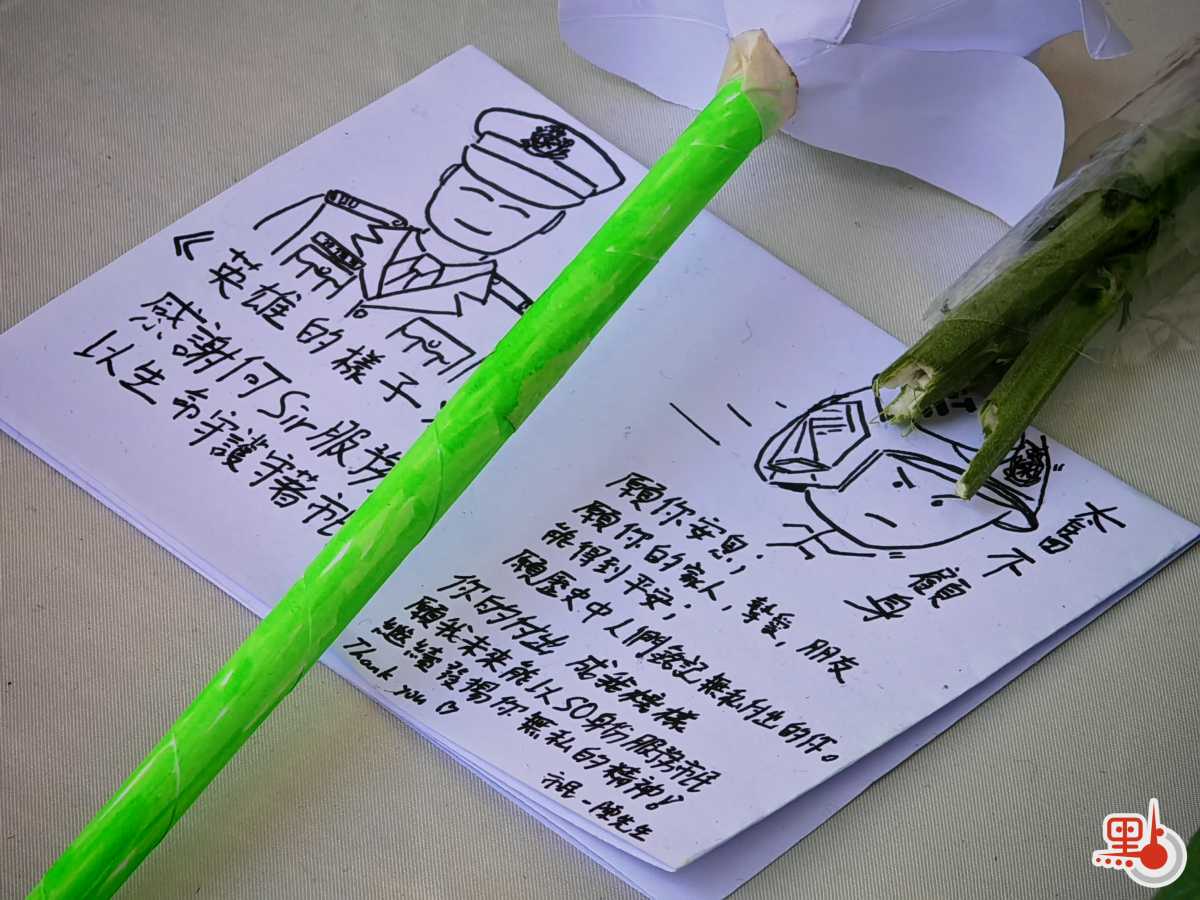 《英雄的樣子
感謝何Sir服務
以生命守護守著市
奮不
顧身
願你安息；
願你的家人，摯愛，朋友
能得到平安；
願歷史中人們銘記無私付出的你。
你的付出 成我榜樣
願我未來能以SO身份服務市民
繼續發揚你無私的精神！
Thank you ♡
市民-陳先生
點